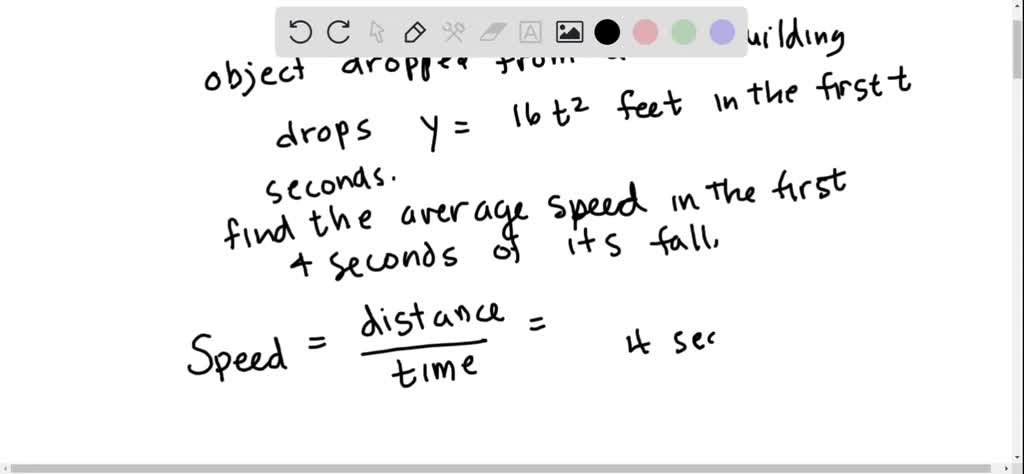 object dropped from a building
drops y = 16t² feet in the first t
seconds.
find the average speed in the first
4 seconds of its fall.
Speed = distance / time = 4 sec
A